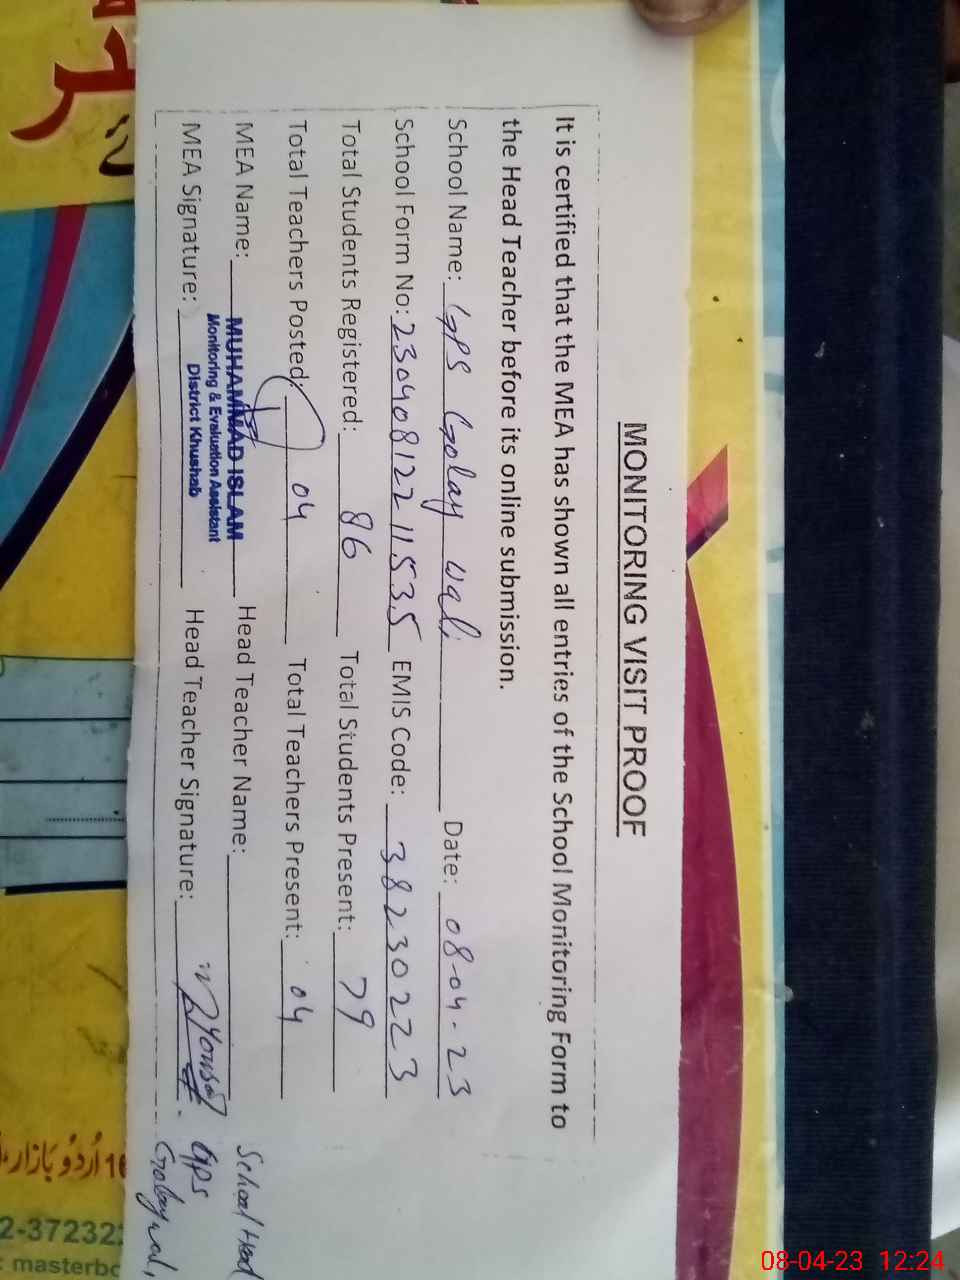 MONITORING VISIT PROOF
It is certified that the MEA has shown all entries of the School Monitoring Form to
the Head Teacher before its online submission.
School Name: GPS Golay wali Date: 08-04-23
School Form No: 23040812211535 EMIS Code: 38230223
Total Students Registered: 86 Total Students Present: 79
Total Teachers Posted: 04 Total Teachers Present: 04
MEA Name: MUHAMMAD ISLAM Head Teacher Name:
Monitoring & Evaluation Assistant
District Khushab
MEA Signature: Head Teacher Signature: M Yousaf
School Head
GPS
Golay wali
اُردُو بَازار
2-37232
masterbo
08-04-23 12:24